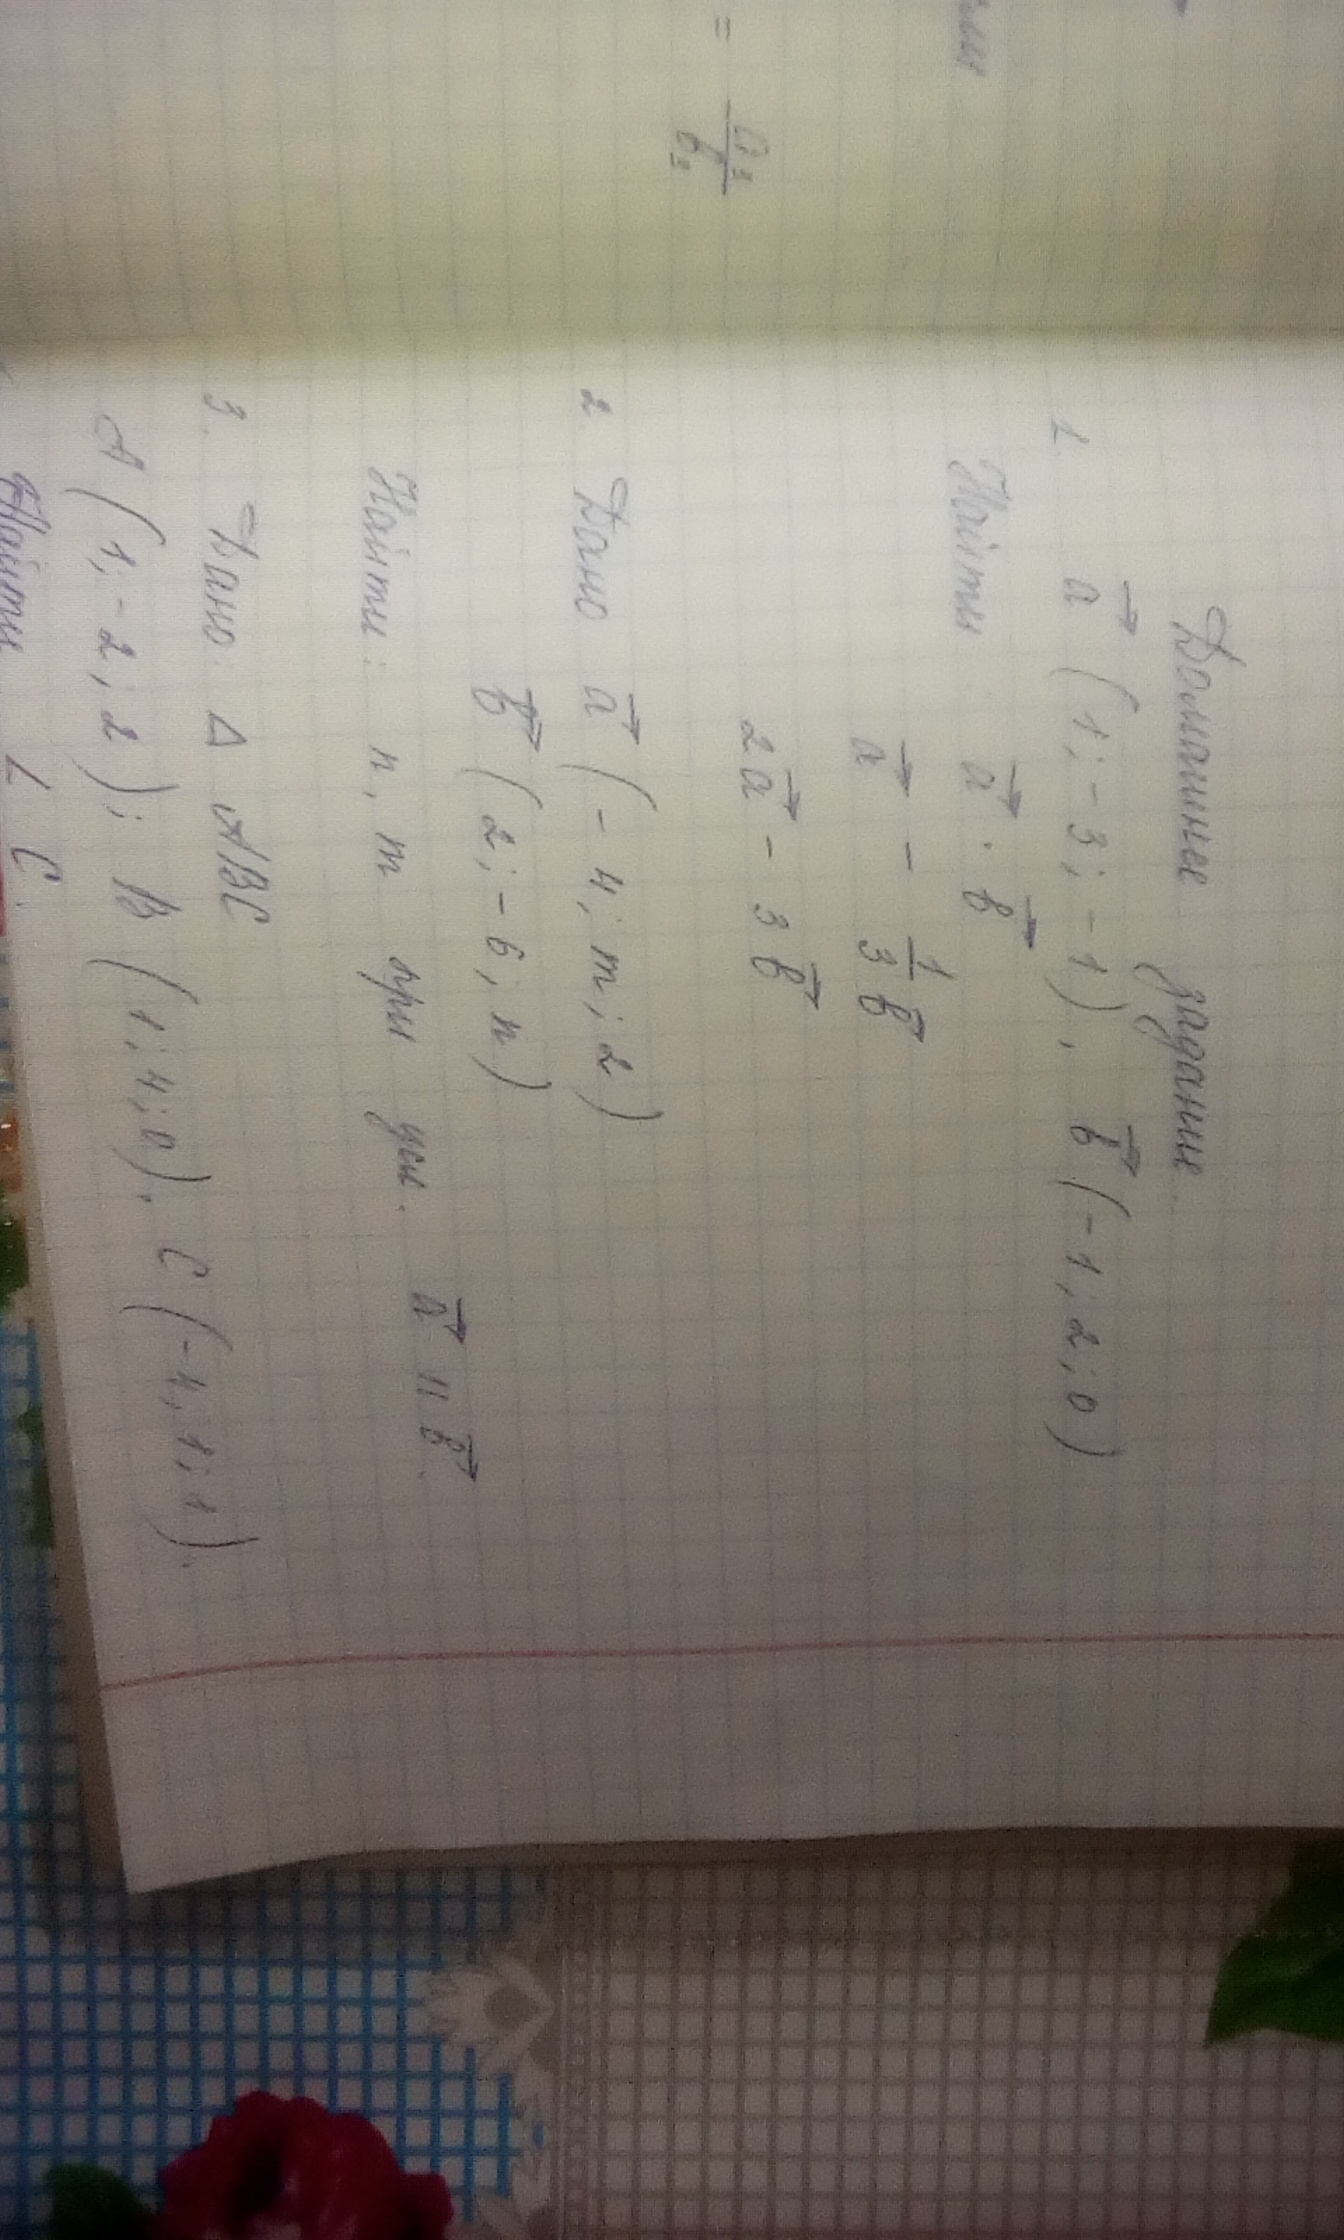 = a₃/b₃
Домашнее задание.
1. a⃗ (1; -3; -1), b⃗ (-1; 2; 0)
Найти: a⃗ · b⃗
a⃗ - 1/3 b⃗
2a⃗ - 3b⃗
2. Дано a⃗ (-4; m; 2)
b⃗ (2; -6; n)
Найти: n, m при усл. a⃗ || b⃗.
3. Дано: Δ ABC
A (1; -2; 2); B (1; 4; 0), C (-4; 1; 1).
Найти ∠ C.